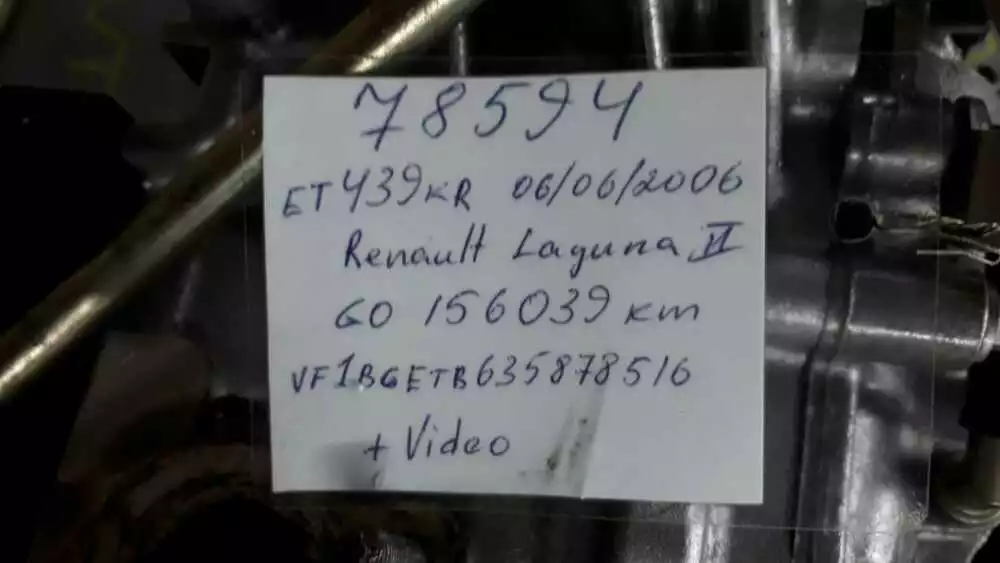 78594
ET439KR 06/06/2006
Renault Laguna II
GO 156039 km
VF1BGETB635878516
+ Video